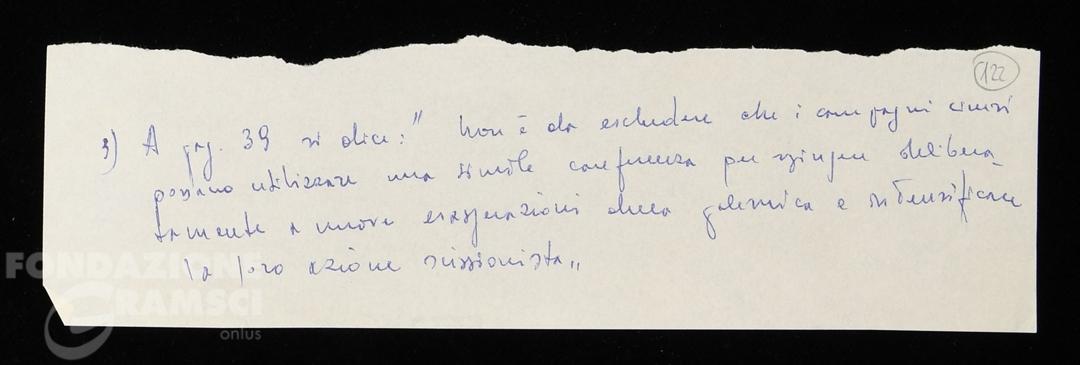 122
3) A pag. 39 si dice: " Non è da escludere che i compagni cinesi
possano utilizzare una simile conferenza per spingere delibera_
tamente a nuove esasperazioni della polemica e intensificare
la loro azione scissionista„
FONDAZIONE
GRAMSCI
onlus